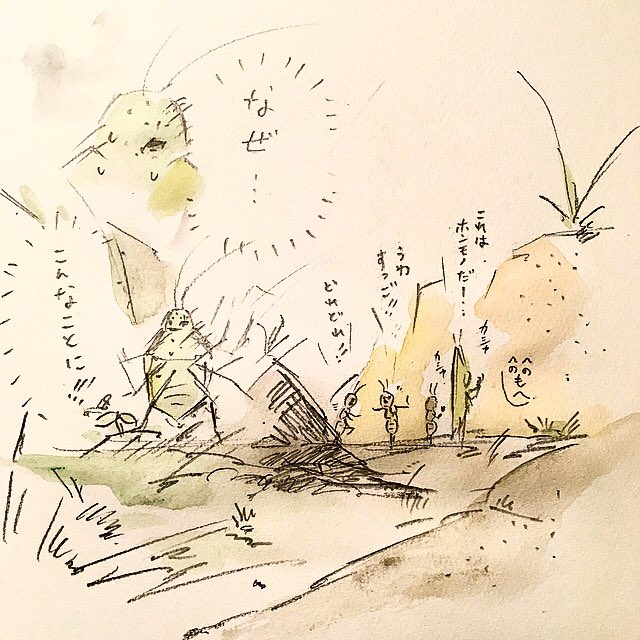 なぜ…
こんなことに!!!
これは、
ホンモノだ!…
うわ
すっご!!
どれどれ!!
カシャ
カシャ
へのへの
もへ